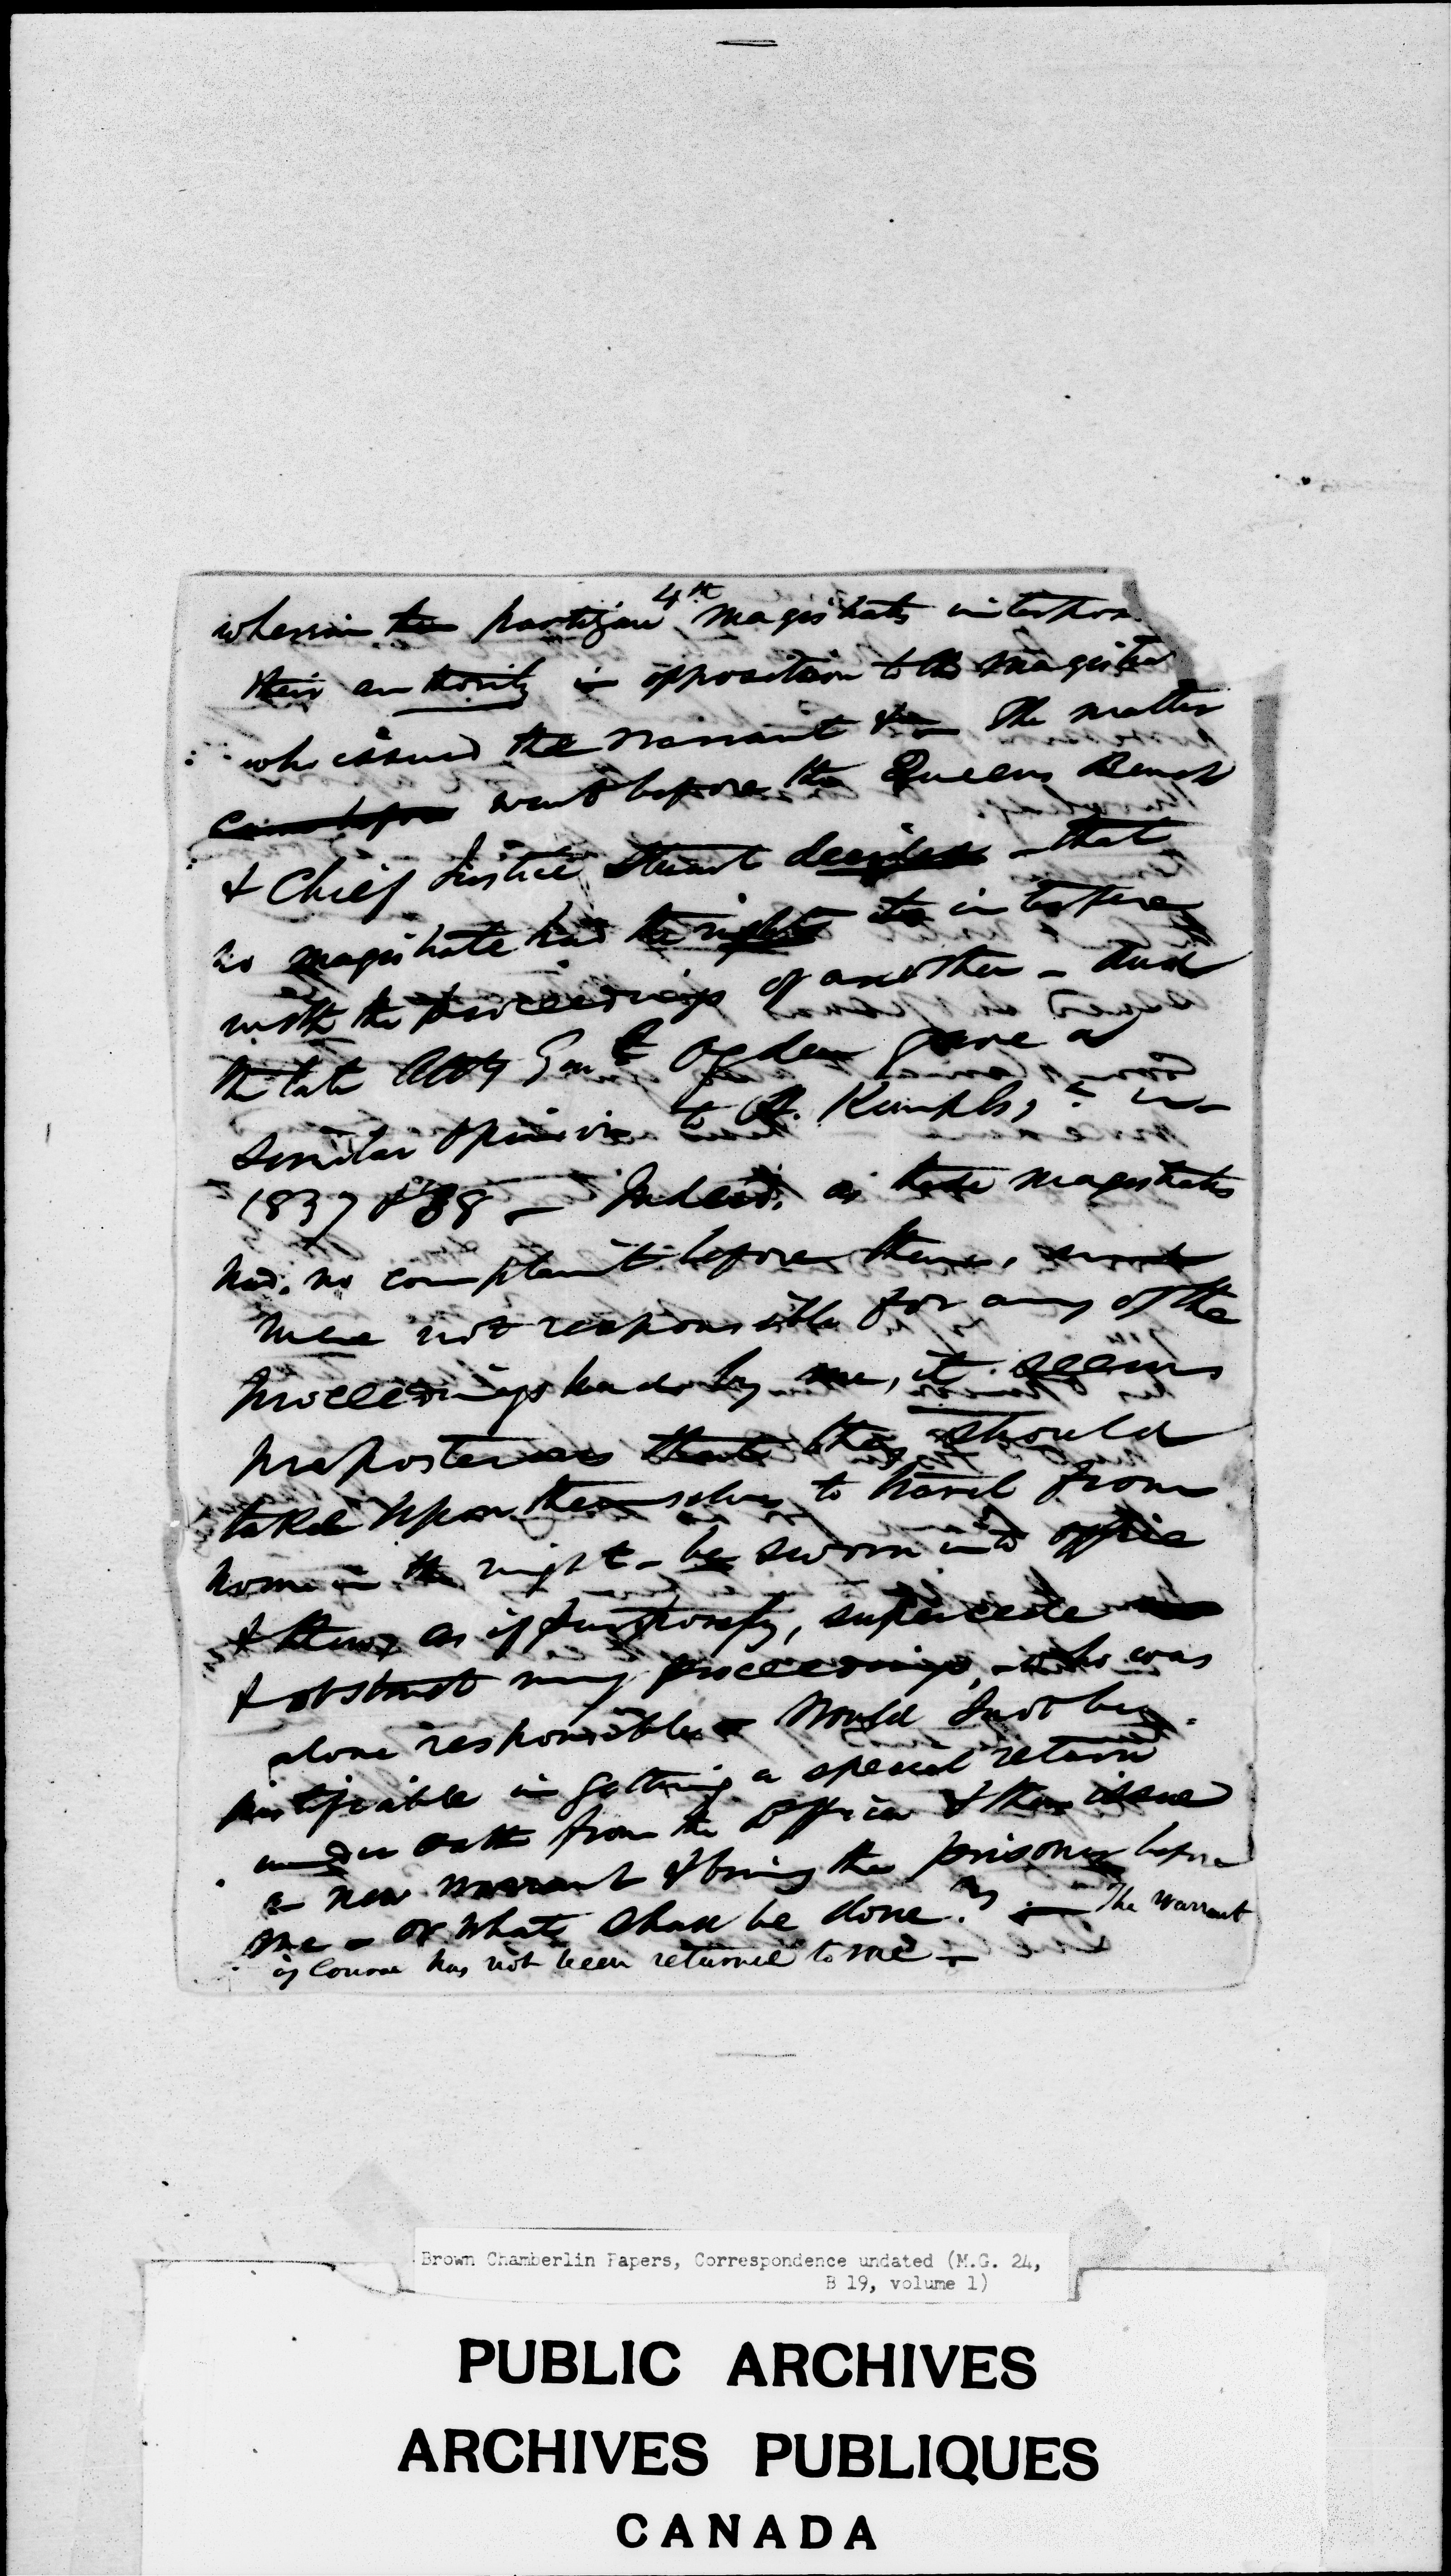 4th
wherein the partizan magistrats interpos
their authority in opposition to the magistra
who issued the warrant &c — The matter
came before went before the Queens Bench
& Chief Justice Stuart decided — that
no magistrate had the right to interfere
with the proceedings of another — And
the late Atty Genl Ogden gave a
similar opinion to R. Kemple, in
1837 & 38 — Indeed, as these magistrates
had no complaint before them,
were not responsible for any of the
proceedings had by me, it seems
preposterous that they should
take upon themselves to travel from
home in the night — be sworn into office
& then, as if purposely, supercede
& obstruct my proceedings, who was
alone responsible — Would I not be
justifiable in getting a special return
under oath from the officer & then issue
a new warrant & bring the prisoner before
me — or what shall be done? — The warrant
of course has not been returned to me —
Brown Chamberlin Papers, Correspondence undated (M.G. 24,
B 19, volume 1)
PUBLIC ARCHIVES
ARCHIVES PUBLIQUES
CANADA